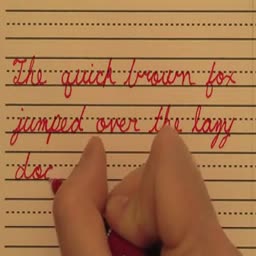 The quick brown fox
jumped over the lazy
doc